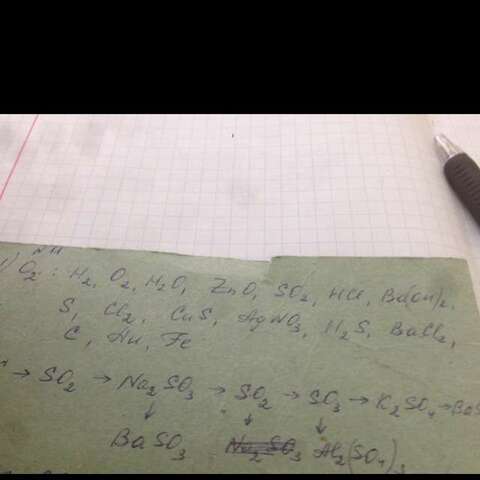 NH
1) O₂ : H₂, O₂, H₂O, ZnO, SO₂, HCl, Ba(OH)₂,
S, Cl₂, CuS, AgNO₃, H₂S, BaCl₂,
C, Au, Fe
→ SO₂ → Na₂SO₃ → SO₂ → SO₃ → K₂SO₄ → BaS
↓ ↓ ↓
BaSO₃ Al₂(SO₄)₃